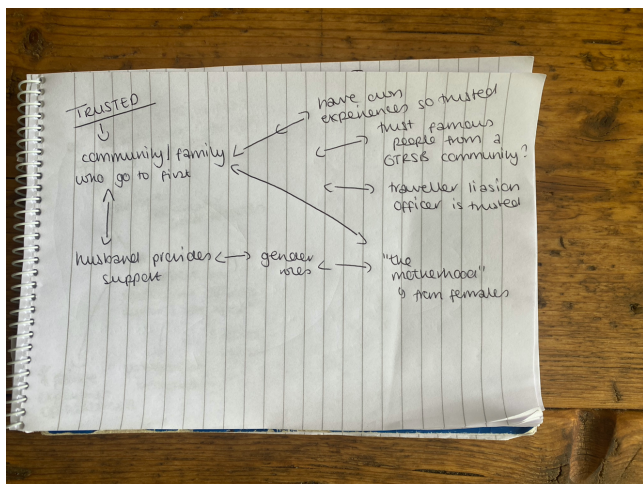 TRUSTED
community/family
who go to first
have own
experiences so trusted
trust famous
people from a
GTRSB community?
traveller liasion
officer is trusted
husband provides
support
gender
roles
"the
motherhood"
from females